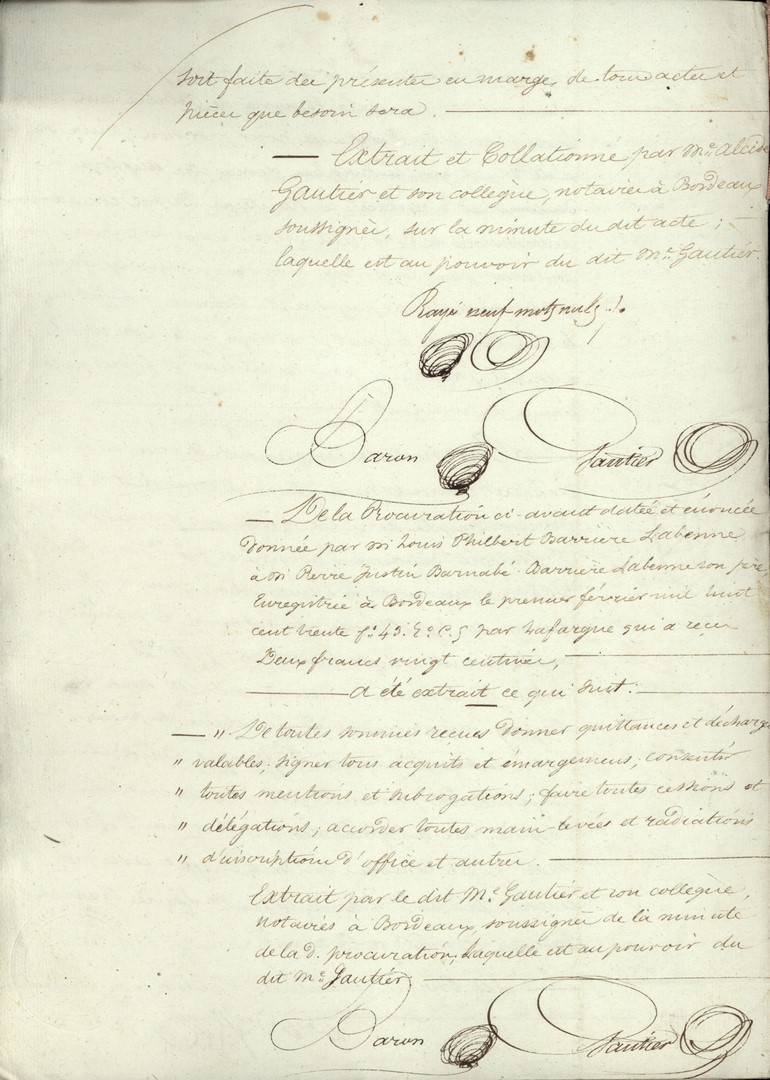 soit faite des présentes en marge de tous actes et
pièces que besoin sera.
— Extrait et Collationné par Me. Alcide
Gautier et son collègue, notaires à Bordeaux
soussignés, sur la minute du dit acte;
laquelle est au pouvoir du dit Me. Gautier.
Rayé neuf mots nuls ./.
Baron Gautier
— De la Procuration ci-avant datée et énoncée
donnée par Mr Louis Philbert Barrière Labenne
à Mr Pierre Justin Barnabé Barrière Labenne son père,
Enregistrée à Bordeaux le premier février mil huit
cent trente fo. 43. Vo. C. 5 par Lafargue qui a reçu
Deux francs vingt centimes,
a été extrait ce qui suit:
— " De toutes sommes reçues donner quittances et décharges
" valables; signer tous acquits et émargemens; consentir
" toutes mentions et subrogations; faire toutes cessions et
" délégations; accorder toutes main-levées et radiations
" d'inscriptions d'office et autres.
Extrait par le dit Me. Gautier et son collègue,
notaires à Bordeaux soussignés de la minute
de la d. procuration, laquelle est au pouvoir du
dit Me. Gautier
Baron Gautier